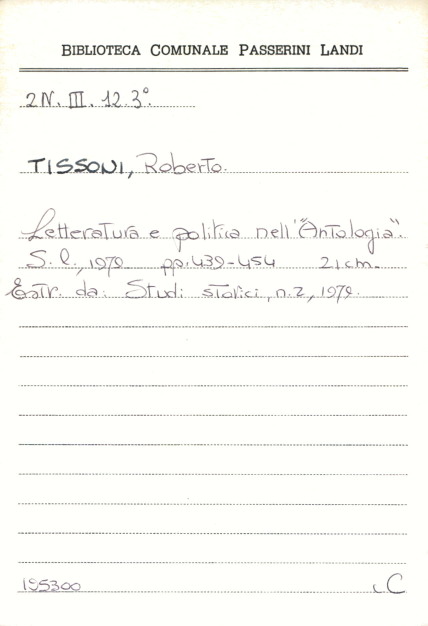 BIBLIOTECA COMUNALE PASSERINI LANDI
2N. III. 12.3°.
TISSONI, Roberto.
Letteratura e politica nell'"Antologia".
S. l., 1979 pp. 439-454 21 cm.
Estr. da: Studi storici, n. 2, 1979.
195300 C